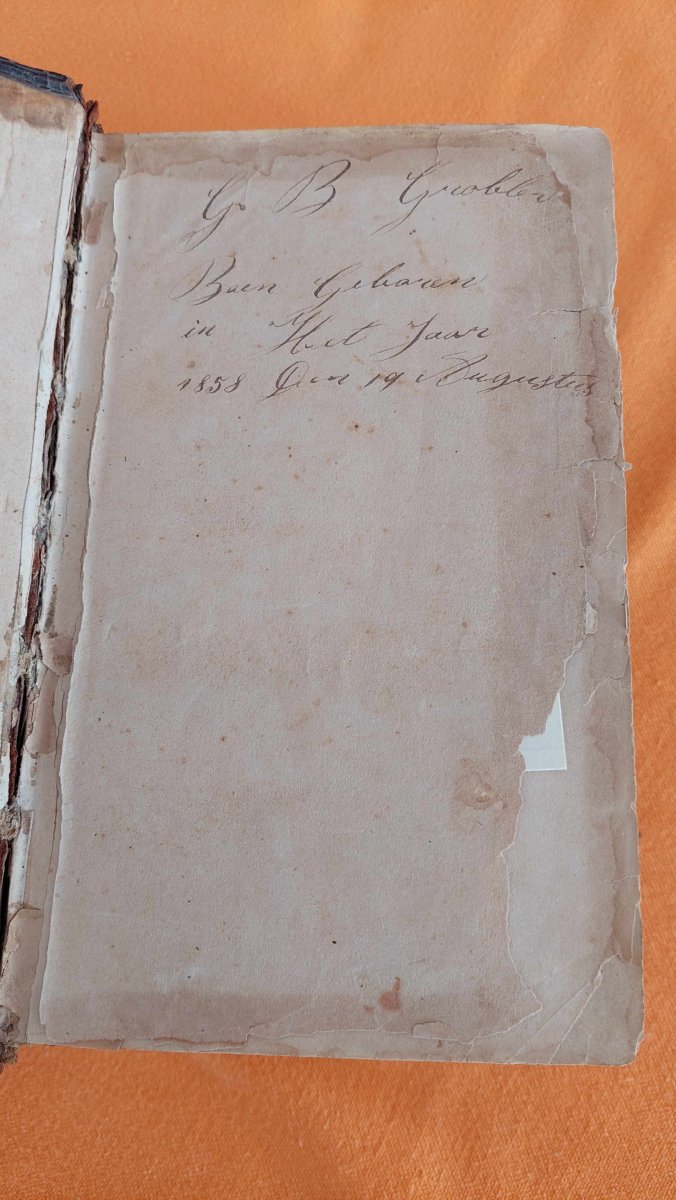 G B Grobler
Ben Geboren
in Het Jaar
1858 Den 19 Augustus